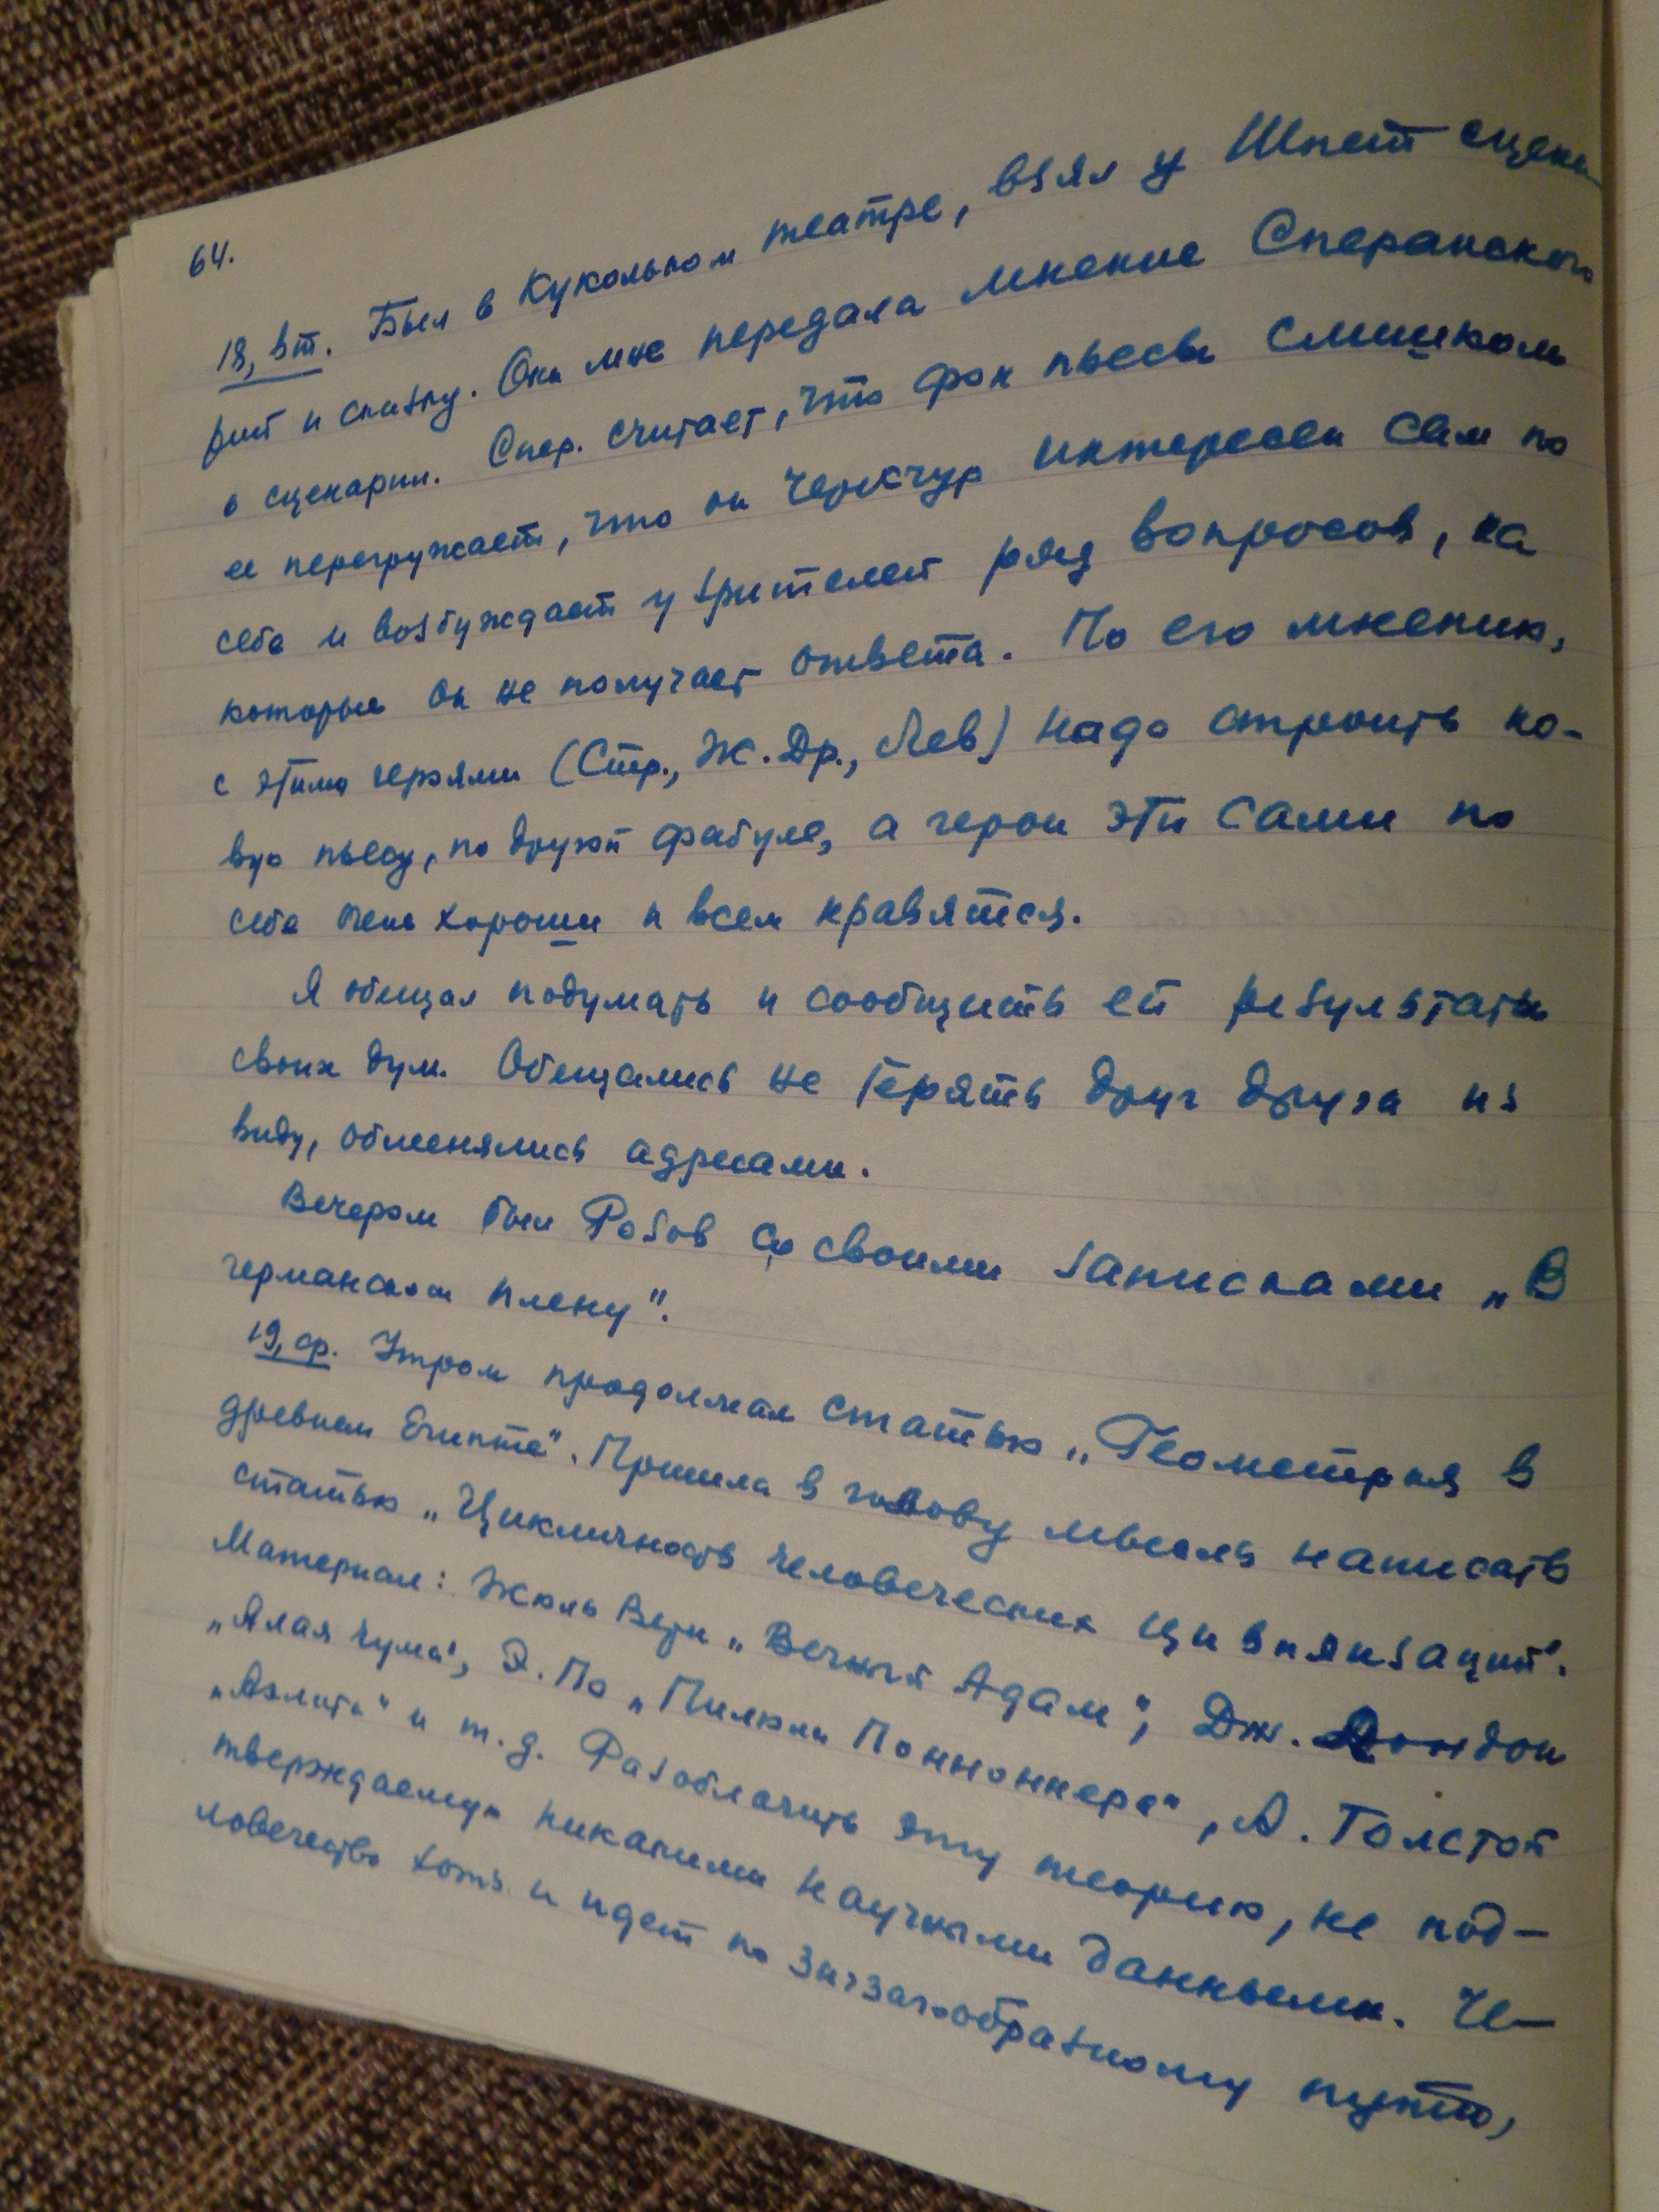 64.
18, вт. Был в Кукольном театре, взял у Шпет сцена-
рий и сказку. Она мне передала мнение Сперанского
о сценарии. Спер. считает, что фон пьесы слишком
ее перегружает, что он чересчур интересен сам по
себе и возбуждает у зрителей ряд вопросов, на
которые он не получает ответа. По его мнению,
с этими героями (Стр., Ж. Др., Лев) надо строить но-
вую пьесу, по другой фабуле, а герои эти сами по
себе очень хороши и всем нравятся.
Я обещал подумать и сообщить ей результаты
своих дум. Обещались не терять друг друга из
виду, обменялись адресами.
Вечером был Розов со своими записками „В
германском плену".
19, ср. Утром продолжал статью „Геометрия в
древнем Египте". Пришла в голову мысль написать
статью „Цикличность человеческих цивилизаций".
Материал: Жюль Верн „Вечный Адам", Дж. Лондон
„Алая чума", Э. По „Пилюли Понноннера", А. Толстой
„Аэлита" и т. д. Разоблачить эту теорию, не под-
тверждаемую никакими научными данными. Че-
ловечество хоть и идет по зигзагообразному пути,